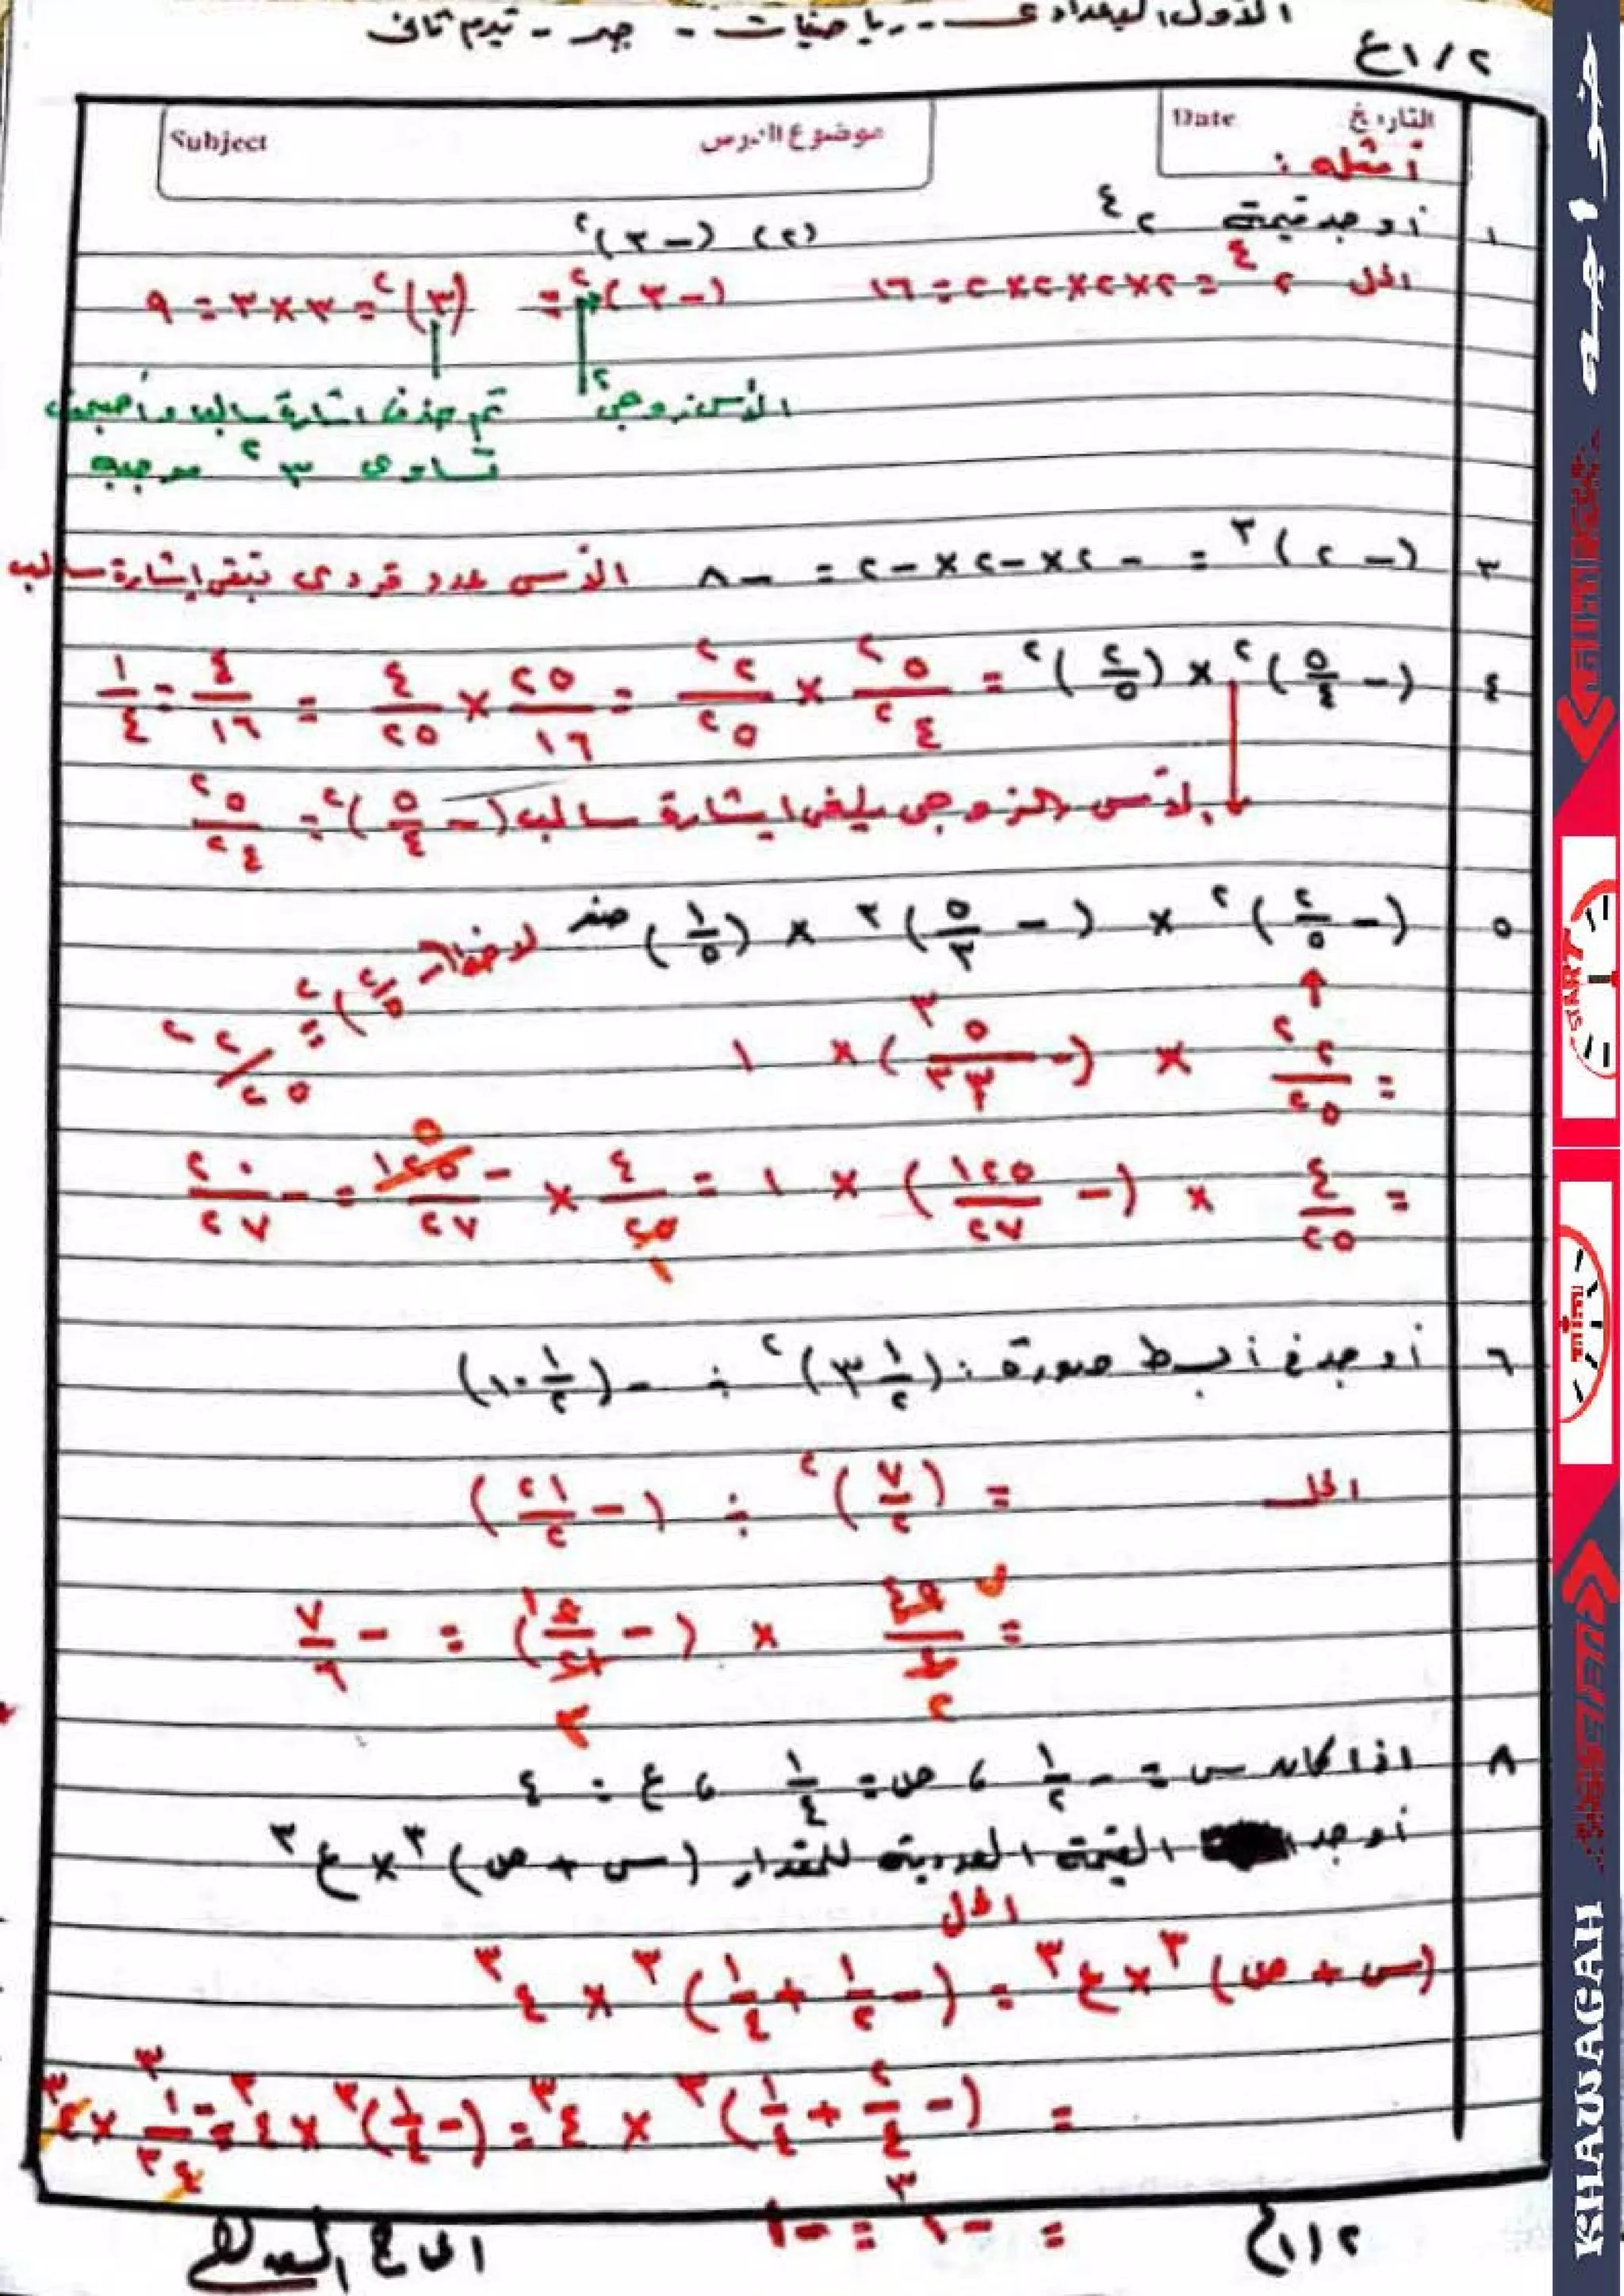 الأول الإعدادى - رياضيات - جبر - تيرم ثانى
ع١/٢
Subject موضوع الدرس Date التاريخ
أمثله :
١ أوجد قيمة ٢^٤ (٢) (-٣)^٢
الحل ٢^٤ = ٢×٢×٢×٢ = ١٦ (-٣)^٢ = (٣)^٢ = ٣×٣ = ٩
الأس زوجى تم حذف اشارة سالب وأصبحت
تساوى ٣^٢ موجبه
٣ (-٢)^٣ = -٢×-٢×-٢ = -٨ الأسى عدد فردى تبقى إشارة سالب
٤ (-٥/٤)^٢ × (٢/٥)^٢ = ٥^٢/٤^٢ × ٢^٢/٥^٢ = ٢٥/١٦ × ٤/٢٥ = ٤/١٦ = ١/٤
الأسى الزوجى يلغى إشارة سالب (-٥/٤)^٢ = ٥^٢/٤^٢
٥ (-٢/٥)^٢ × (-٥/٣)^٣ × (١/٥)^صفر لاحظ (-٢/٥)^٢ = ٢^٢/٥^٢
= ٢^٢/٥^٢ × (-٥^٣/٣^٣) × ١
= ٤/٢٥ × (-١٢٥/٢٧) × ١ = ٤/٢٥ × -١٢٥/٢٧ = -٢٠/٢٧
٦ أوجد فى أبسط صورة : (٣ ١/٢)^٢ ÷ -(١٠ ١/٢)
الحل = (٧/٢)^٢ ÷ (-٢١/٢)
= ٤٩/٤ × (-٢/٢١) = -٧/٦
٨ اذا كان س = -١/٢ ، ص = ١/٤ ، ع = ٤
أوجد القيمة العددية للمقدار (س + ص)^٣ × ع^٣
الحل
(س + ص)^٣ × ع^٣ = (-١/٢ + ١/٤)^٣ × ٤^٣
= (-٢/٤ + ١/٤)^٣ × ٤^٣ = (-١/٤)^٣ × ٤^٣ = -١^٣/٤^٣ × ٤^٣
= -١^٣ = -١
ع١/٢
خواجه
START
TIME
KHAWAGAH